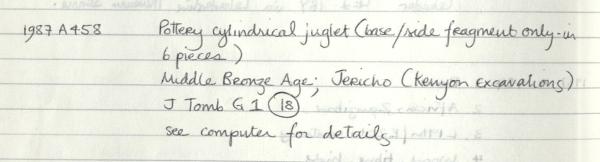 1987 A458 Pottery cylindrical juglet (base/side fragment only - in
6 pieces)
Middle Bronze Age; Jericho (Kenyon Excavations)
J Tomb G 1 (18)
see computer for details